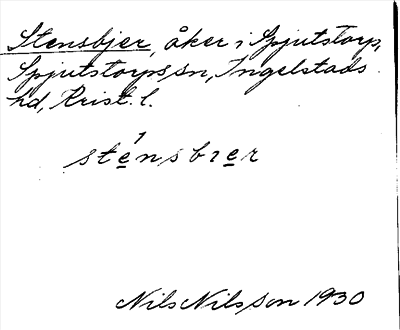 Stensbjer, åker i Spjutstorp,
Spjutstorps sn, Ingelstads
hd, Krist. l.
1
stensbıer
Nils Nilsson 1930